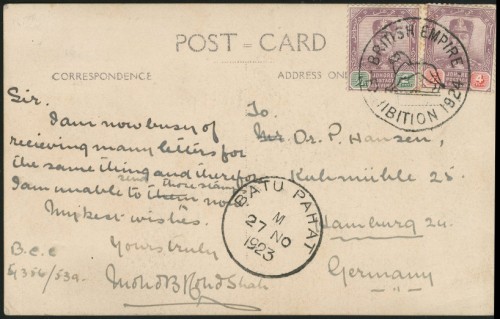 POST - CARD
CORRESPONDENCE
ADDRESS ON
BRITISH EMPIRE
EXHIBITION 1924
4
Sir.
I am now busy of
recieving many letters for
the same thing and therefor
I am unable to them now
send those stamps
My best wishes.
Yours truly
To
Dr. P. Hansen,
Kuhmühle 25
Hamburg 24.
Germany
BATU PAHAT
M
27 NO
1923
B.C.C